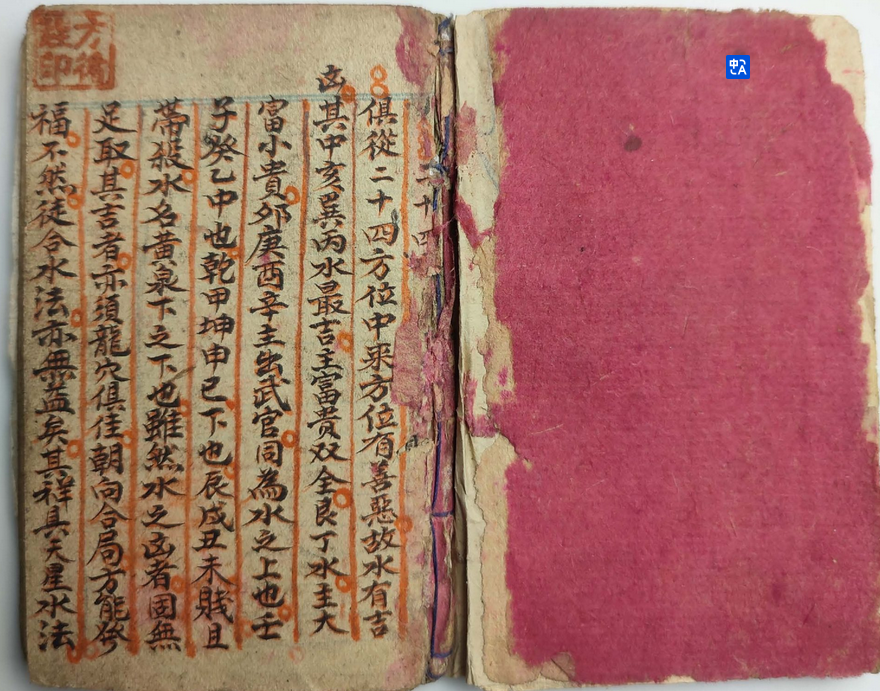 二十四
俱從二十四方位中来方位有善惡故水有吉
凶其中亥巽丙水最吉主富貴双全艮丁水主大
富小貴夘庚酉辛主出武官同為水之上也壬
子癸乙中也乾甲坤申巳下也辰戍丑未賤且
帶殺水名黄泉下之下也雖然水之凶者固無
足取其吉者亦須龍穴俱佳朝向合局方能發
福不然徒合水法亦無益矣其祥具天星水法